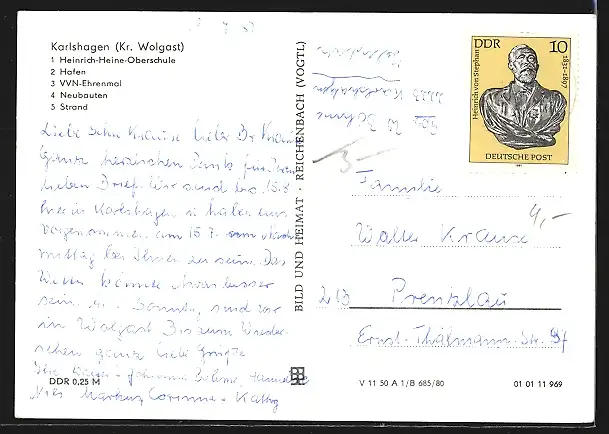 Karlshagen (Kr. Wolgast)
1 Heinrich-Heine-Oberschule
2 Hafen
3 VVN-Ehrenmal
4 Neubauten
5 Strand
Liebe Sehn Krause lieber Dr Krause
Ganz herzlichen Dank für Ihren
lieben Brief. Wir sind bis 15.8
hier in Karlshagen u haben uns
vorgenommen am 15 7. vom Nach
mittag bei Ihnen zu sein. Das
Wetter könnte etwas besser
sein. Sonntag sind wir
in Wolgast Bis zum Wieder
sehen ganz liebe Grüße
Ihre Johanna Böhme, Hannelore
Markus, Corinna + Kathy
DDR 0,25 M
BILD UND HEIMAT · REICHENBACH (VOGTL)
Böhme
2223 Karlshagen
DDR
10
Heinrich von Stephan
1831-1897
DEUTSCHE POST
3,-
4,-
Familie
Walter Krause
213 Prenzlau
Ernst-Thälmann-Str. 97
V 11 50 A 1/B 685/80
01 01 11 969